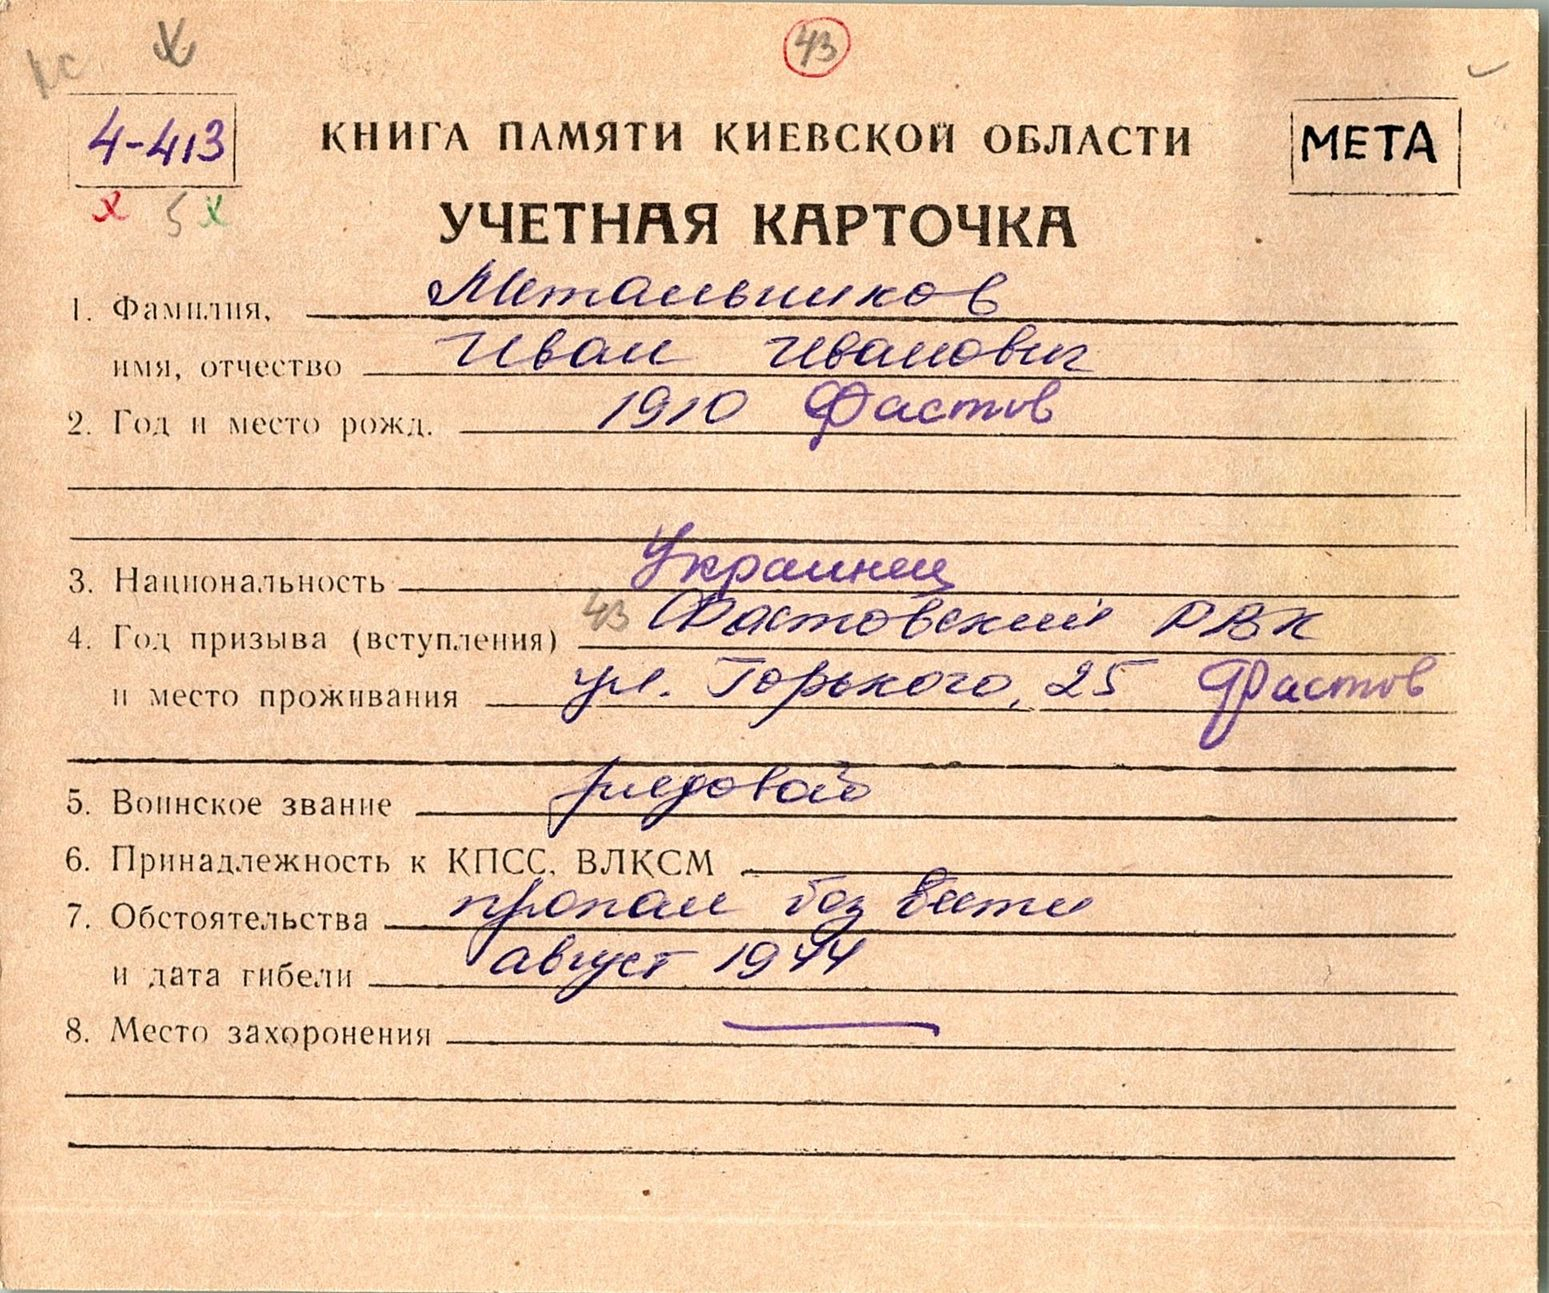 43
4-413
КНИГА ПАМЯТИ КИЕВСКОЙ ОБЛАСТИ
МЕТА
х 5 х
УЧЕТНАЯ КАРТОЧКА
1. Фамилия, Метальников
имя, отчество Иван Иванович
2. Год и место рожд. 1910 Фастов
3. Национальность Украинец
4. Год призыва (вступления) 43 Фастовский РВК
и место проживания ул. Горького, 25 Фастов
5. Воинское звание рядовой
6. Принадлежность к КПСС, ВЛКСМ
7. Обстоятельства пропал без вести
и дата гибели август 1944
8. Место захоронения —